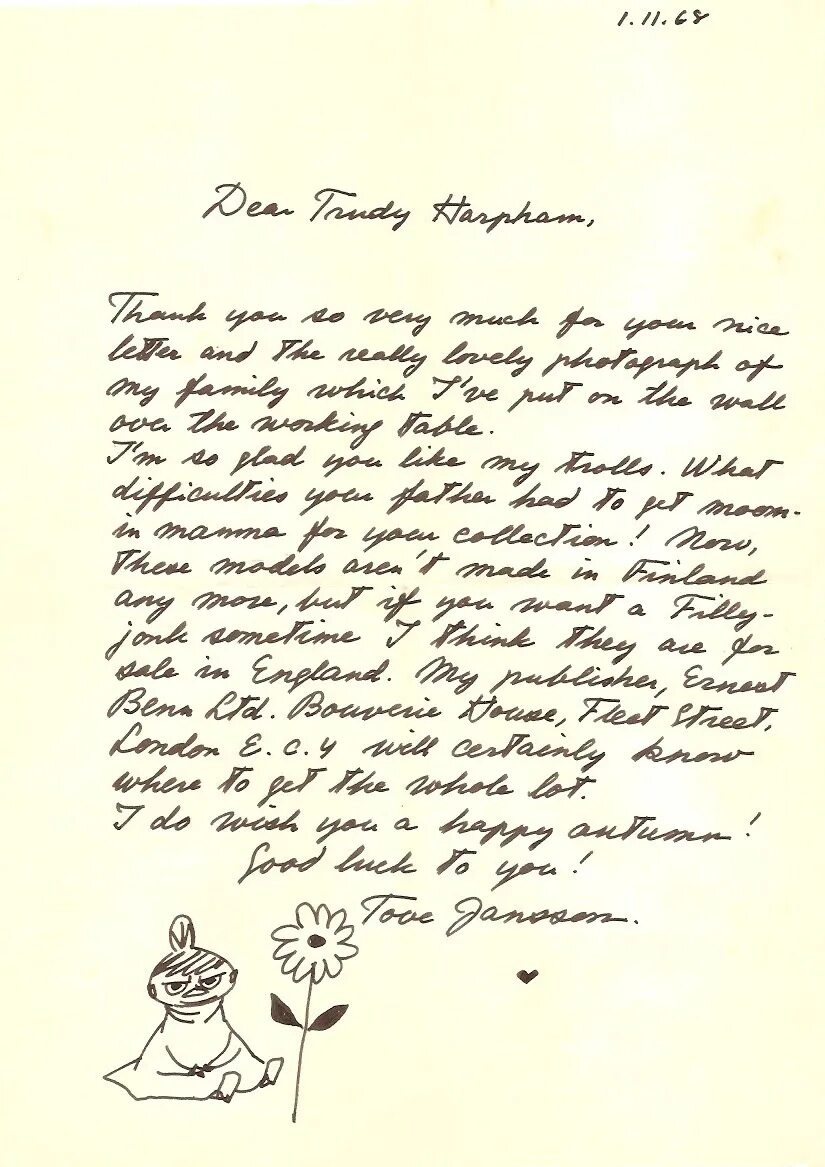 1.11.68
Dear Trudy Harpham,
Thank you so very much for your nice
letter and the really lovely photograph of
my family which I've put on the wall
over the working table.
I'm so glad you like my trolls. What
difficulties your father had to get moom-
in mamma for your collection! Now,
these models aren't made in Finland
any more, but if you want a Filly-
jonk sometime I think they are for
sale in England. My publisher, Ernest
Benn Ltd. Bouverie House, Fleet Street,
London E.C.4 will certainly know
where to get the whole lot.
I do wish you a happy autumn!
Good luck to you!
Tove Jansson.